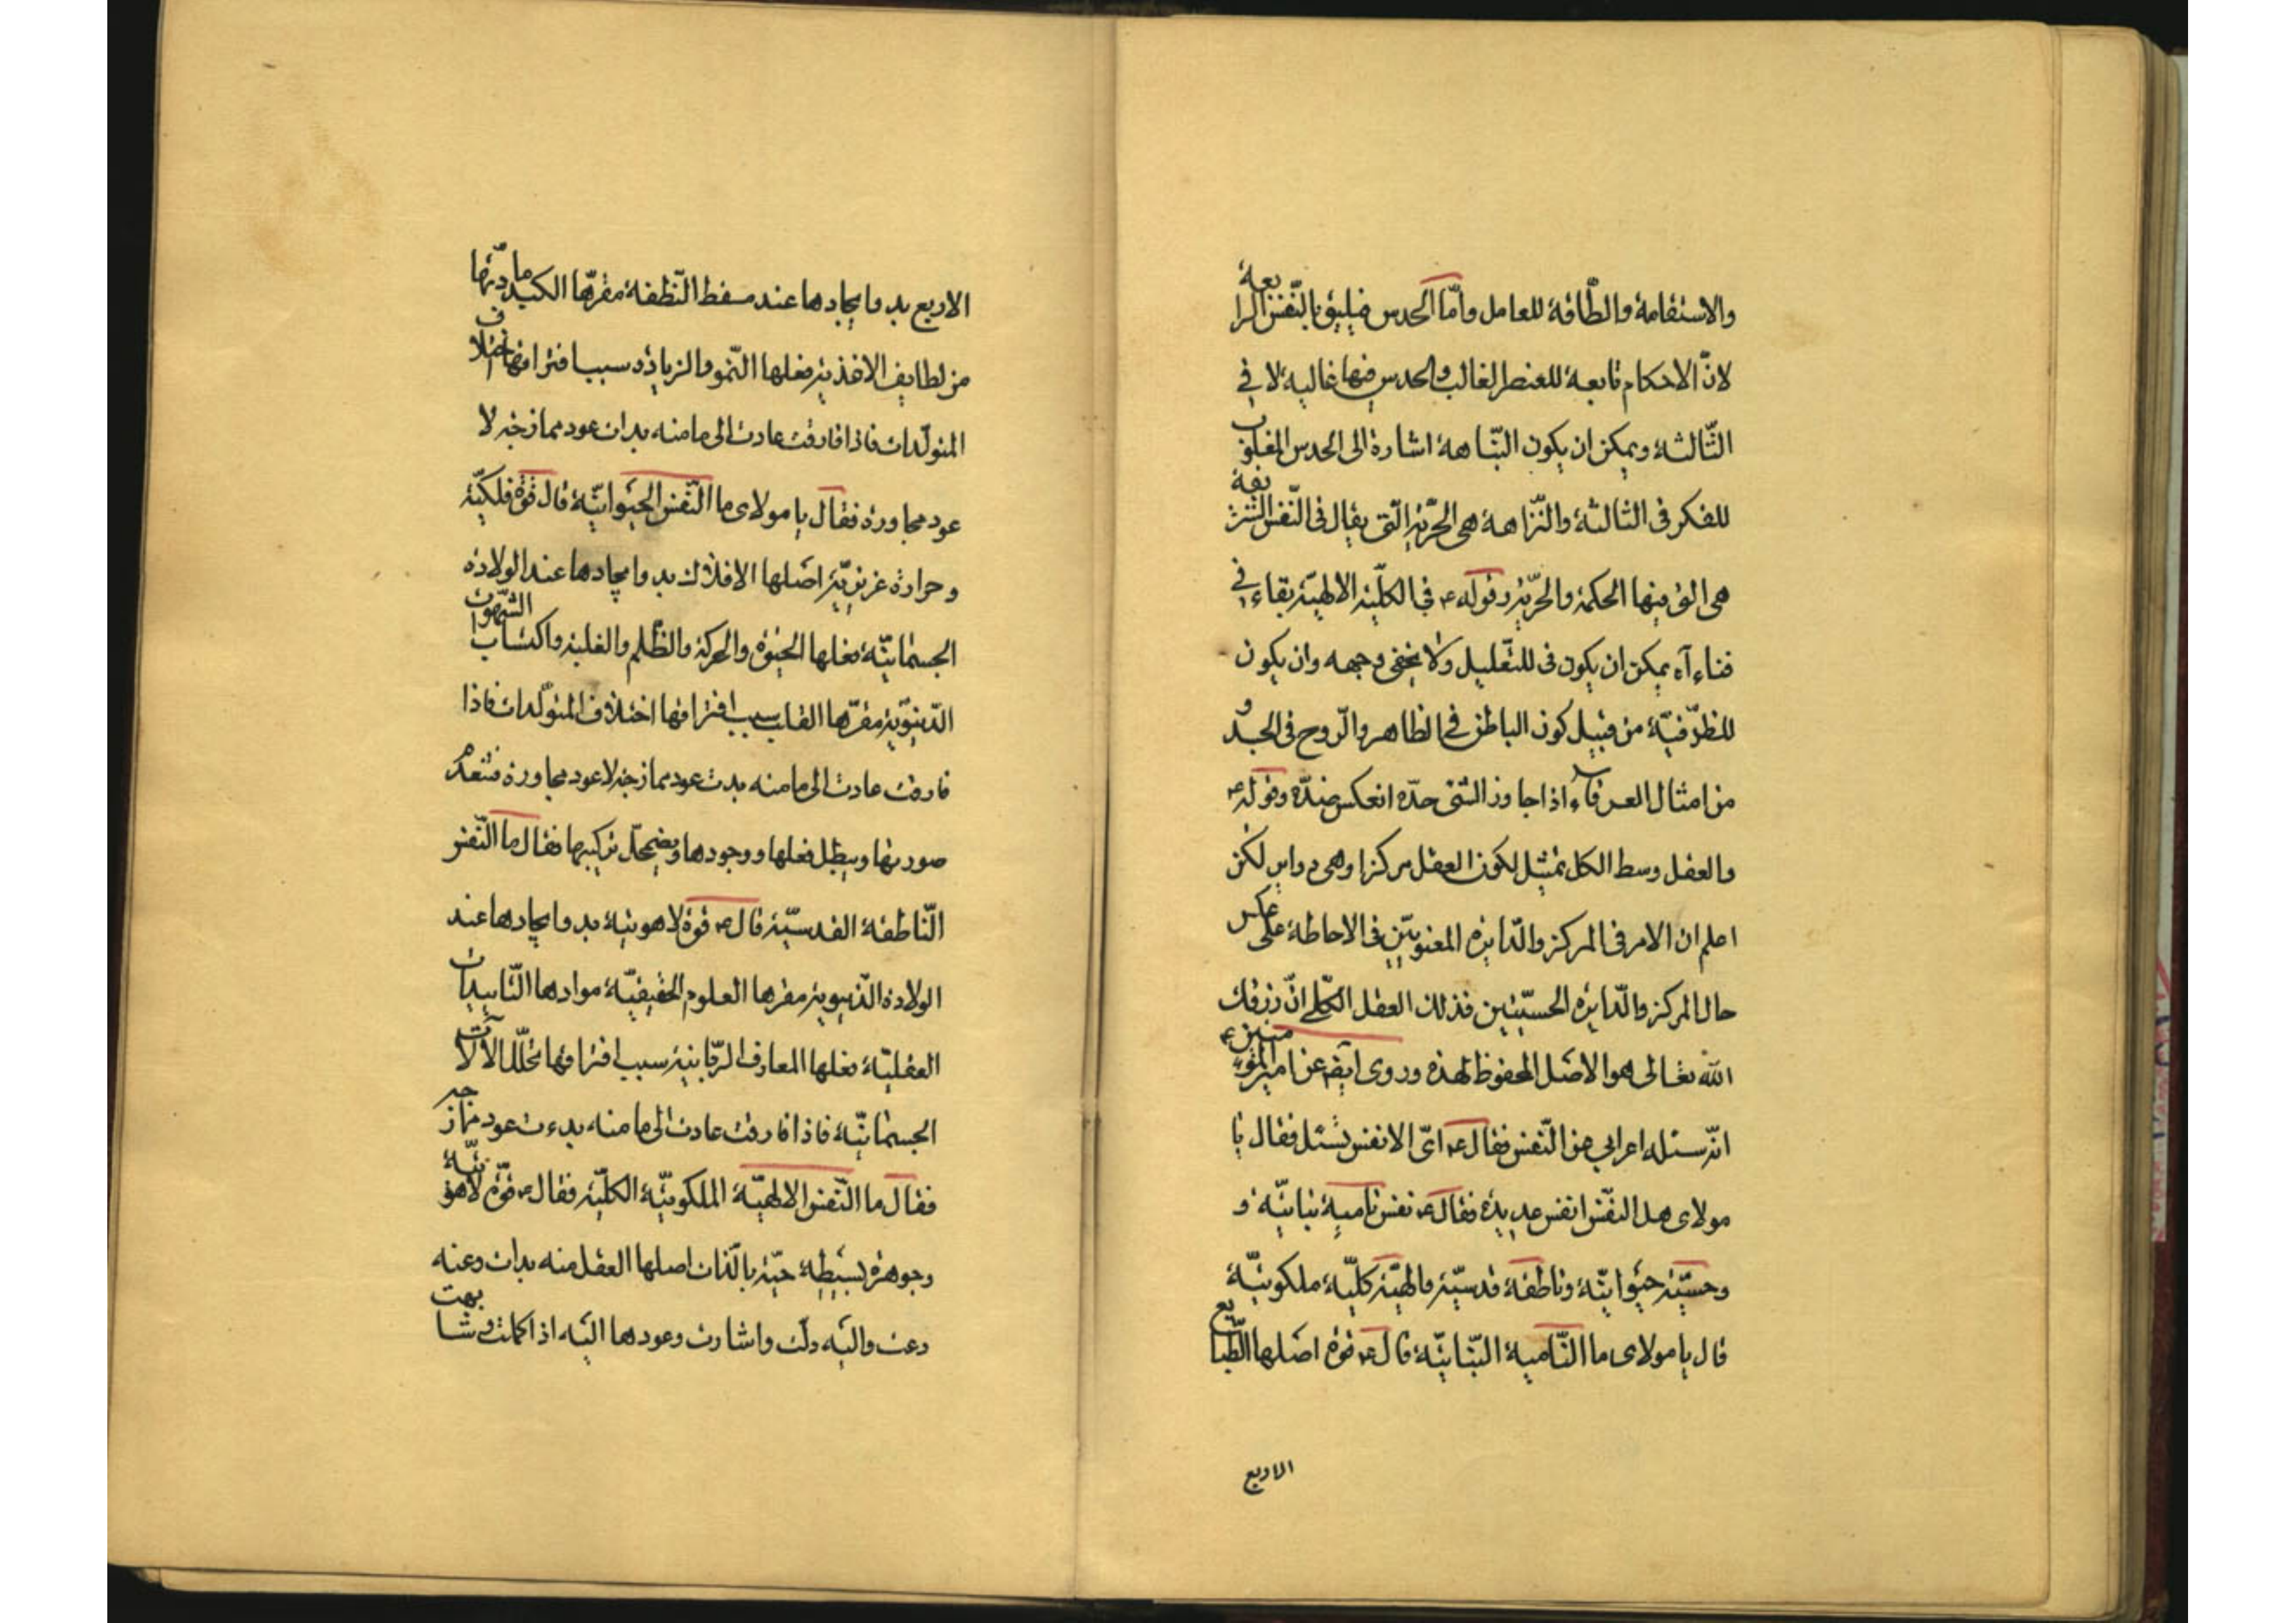 والاستقامة والطّاقة للعامل وامّا الحدس فيليق بالنّفس الرابعة
لانّ الاحكام تابعة للعنصر الغالب والحدس فيها غالبة لا فى
الثّالثة ويمكن ان يكون النّباهة اشارة الى الحدس المغلوب
للفكر فى الثالثة والنّزاهة هى الحرّية الّتى يقال فى النّفس الشريفة
هى الّتى فيها الحكمة والحرّية وقوله ع فى الكلّية الالهيّة بقاء فى
فناء آه يمكن ان يكون فى للتّعليل ولا يخفى وجهه وان يكون
للظرفيّة من قبيل كون الباطن فى الظاهر والرّوح فى الجسد و
من امثال العرفاء اذا جاوز الشئ حدّه انعكس ضدّه وقوله ع
والعقل وسط الكل تمثيل لكون العقل مركزا وهى دواير لكن
اعلم ان الامر فى المركز والدّايرة المعنويّتين فى الاحاطة على عكس
حال المركز والدّايرة الحسيّتين فذلك العقل الكلّى انّ رزقك
الله تعالى هو الاصل المحفوظ لهذه وروى ايضا عن امير المؤمنين ع
انّه سئله اعرابى عن النّفس فقال ع اىّ الانفس تسئل فقال يا
مولاى هل النفس انفس عديدة فقال ع نفس نامية نباتيّة و
وحسّيّة حيوانيّة وناطقة قدسيّة والهيّة كلّيّة ملكوتيّة
قال يا مولاى ما النّامية النّباتيّة قال ع قوة اصلها الطّبايع
الاربع
الاربع بدو ايجادها عند مسقط النّطفة مقرّها الكبد مادّتها
من لطايف الاغذية فعلها النّمو والزيادة وسبب افتراقها اختلاف
المتولّدات فاذا فارقت عادت الى ما منه بدات عود ممازجة لا
عود مجاورة فقال يا مولاى ما النّفس الحيوانيّة قال قوة فلكيّة
وحرارة غريزيّة اصلها الافلاك بدو ايجادها عند الولادة
الجسمانيّة فعلها الحيوة والحركة والظّلم والغلبة واكتساب الشهوات
الدّنيويّة مقرّها القلب سبب افتراقها اختلاف المتولّدات فاذا
فارقت عادت الى ما منه بدت عود ممازجة لا عود مجاورة فتنعدم
صورتها ويبطل فعلها ووجودها ويضمحلّ تركيبها فقال ما النّفس
النّاطقة القدسيّة قال ع قوة لاهوتية بدو ايجادها عند
الولادة الدّنيوية مقرها العلوم الحقيقيّة موادها التّاييدات
العقليّة فعلها المعارف الرّبانية سبب افتراقها تحلّل الآلات
الجسمانيّة فاذا فارقت عادت الى ما منه بدءت عود ممازجة
فقال ما النّفس الالهيّة الملكوتيّة الكلّية فقال ع قوّة لاهوتيّة
وجوهرة بسيطة حيّة بالذّات اصلها العقل منه بدات وعنه
دعت واليه دلّت واشارت وعودها اليه اذا كملت وشابهت